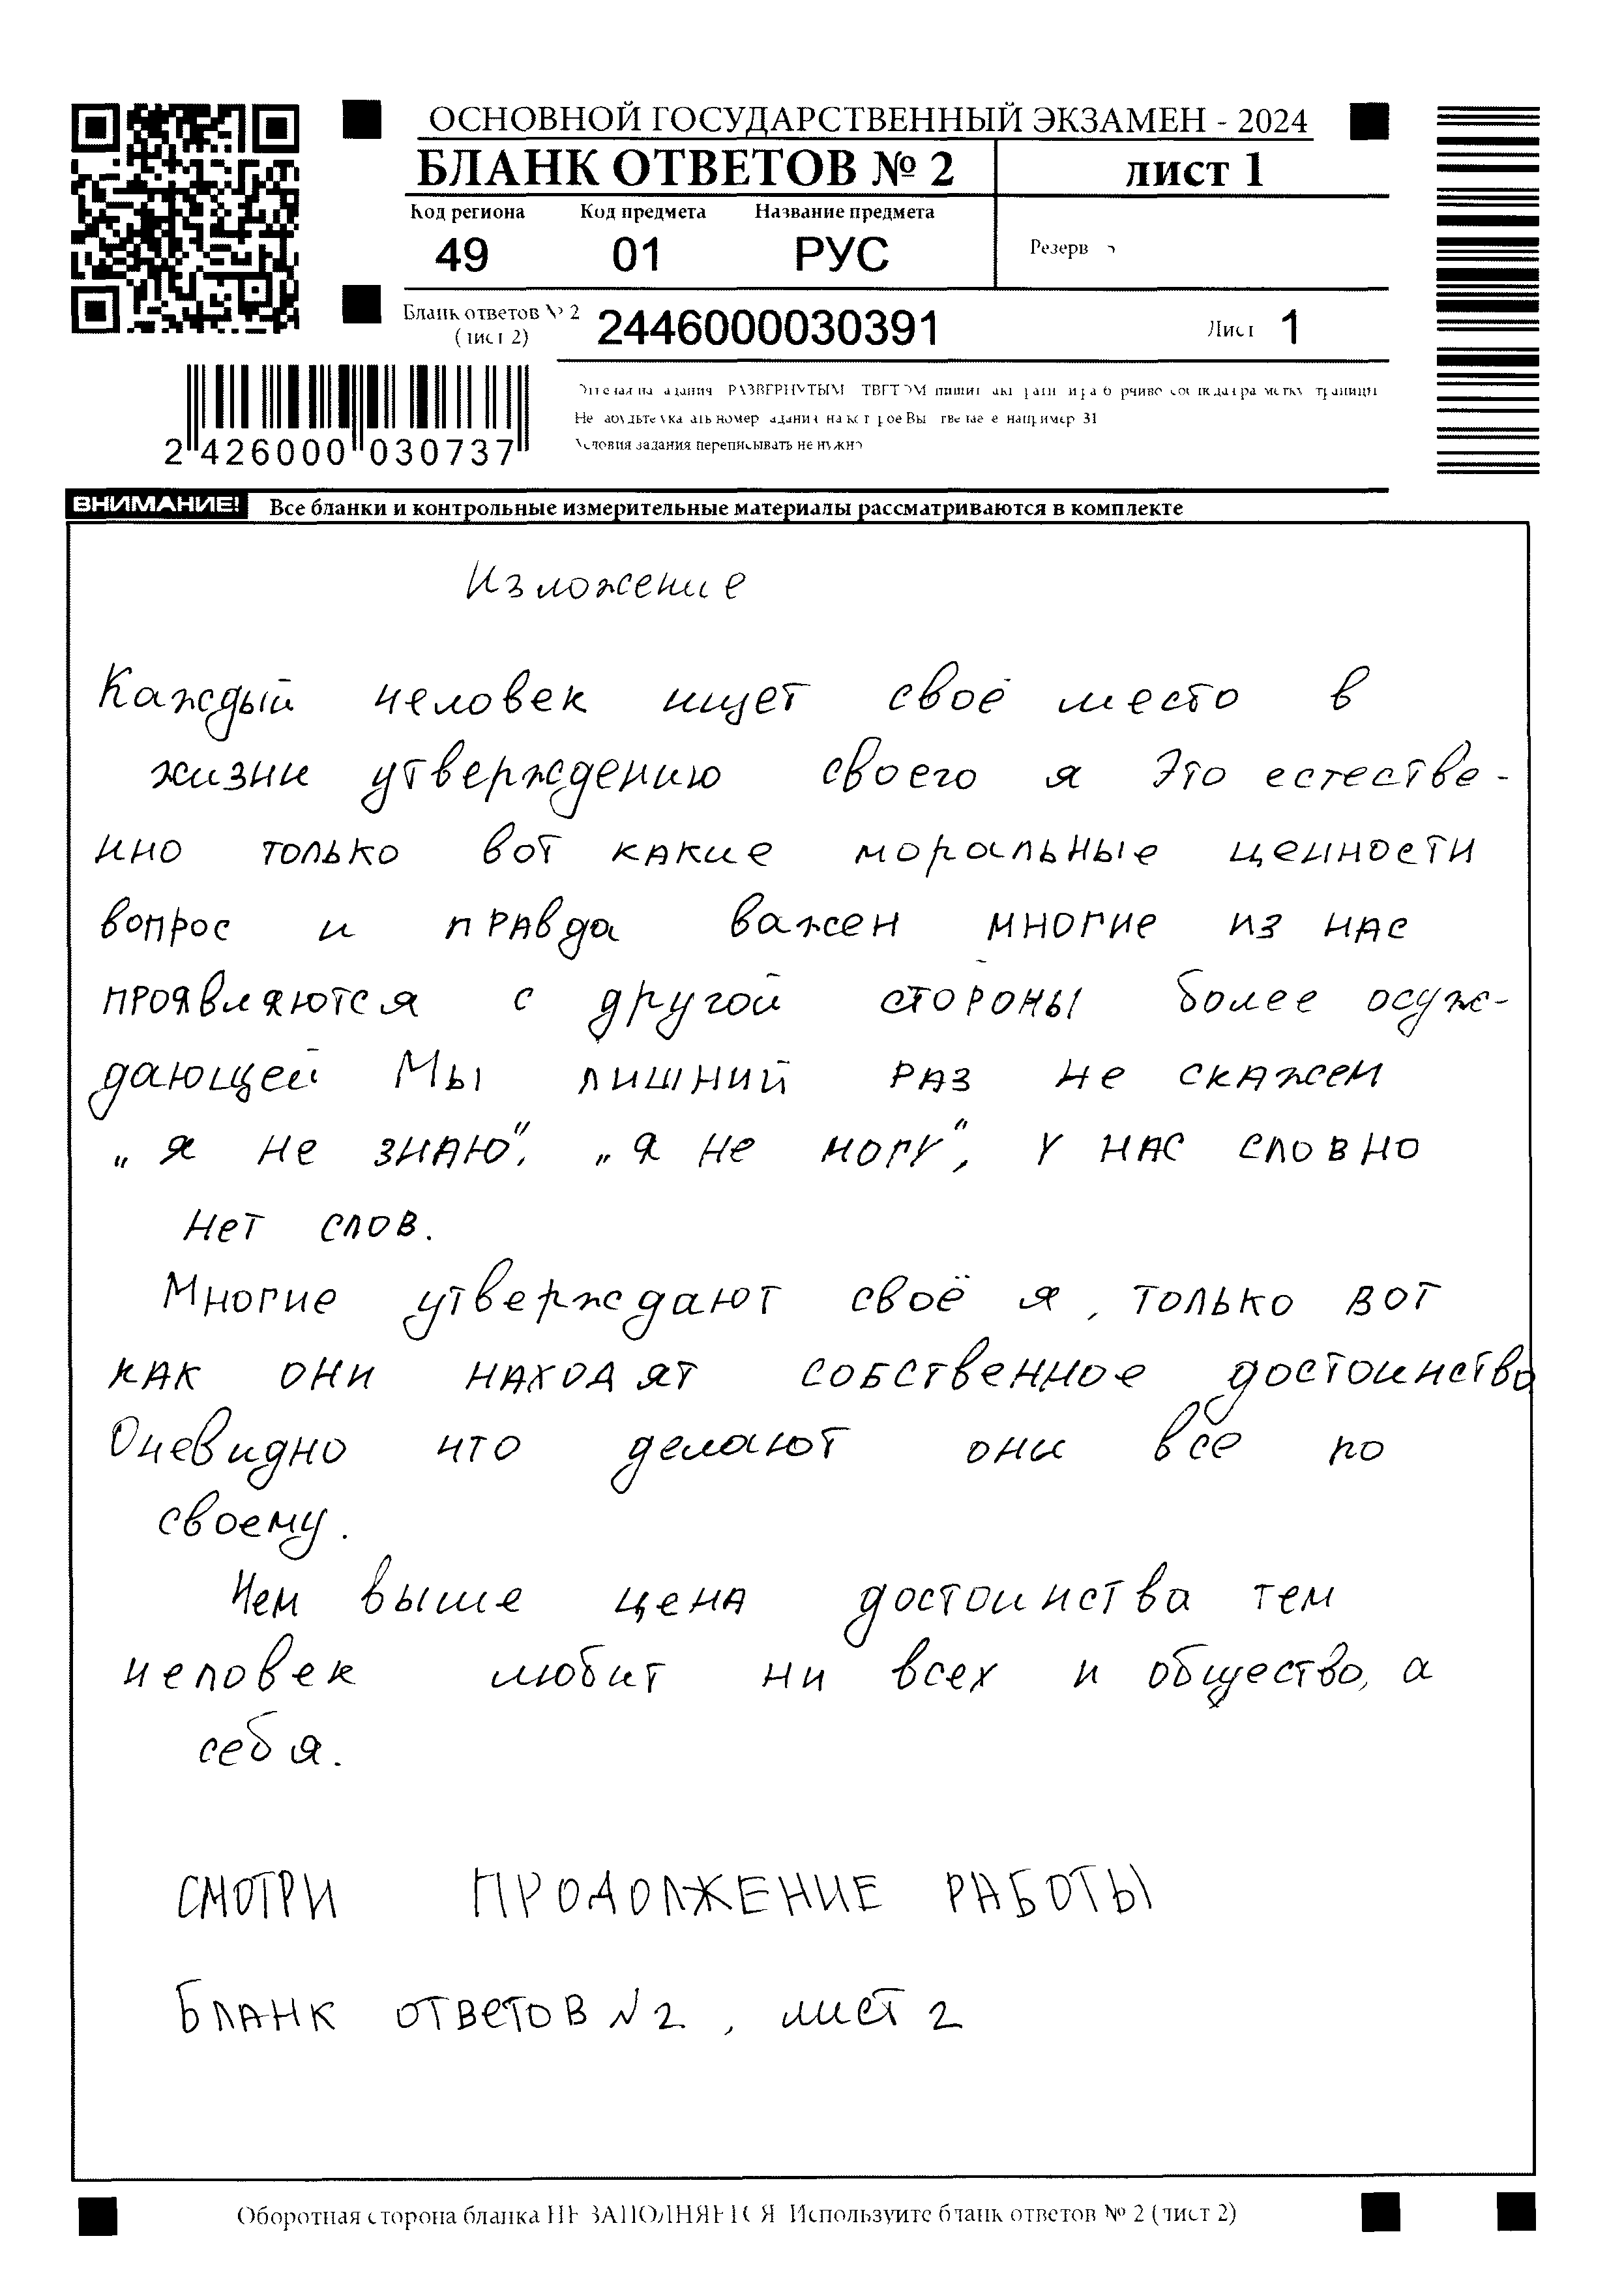 ОСНОВНОЙ ГОСУДАРСТВЕННЫЙ ЭКЗАМЕН - 2024
БЛАНК ОТВЕТОВ № 2 лист 1
Код региона Код предмета Название предмета
49 01 РУС Резерв
Бланк ответов № 2 2446000030391 Лист 1
(лист 2)
2 426000 030737
Условия задания переписывать не нужно
ВНИМАНИЕ! Все бланки и контрольные измерительные материалы рассматриваются в комплекте
Изложение
Каждый человек ищет своё место в
жизни утверждению своего я Это естестве-
нно только вот какие моральные ценности
вопрос и правда важен многие из нас
проявляются с другой стороны более осуж-
дающей Мы лишний раз не скажем
„я не знаю", „я не могу", у нас словно
нет слов.
Многие утверждают своё я, только вот
как они находят собственное достоинство
Очевидно что делают они всё по
своему.
Чем выше цена достоинства тем
человек любит ни всех и общество, а
себя.
СМОТРИ ПРОДОЛЖЕНИЕ РАБОТЫ
БЛАНК ОТВЕТОВ N 2, лист 2
Оборотная сторона бланка НЕ ЗАПОЛНЯЕТСЯ Используйте бланк ответов № 2 (лист 2)